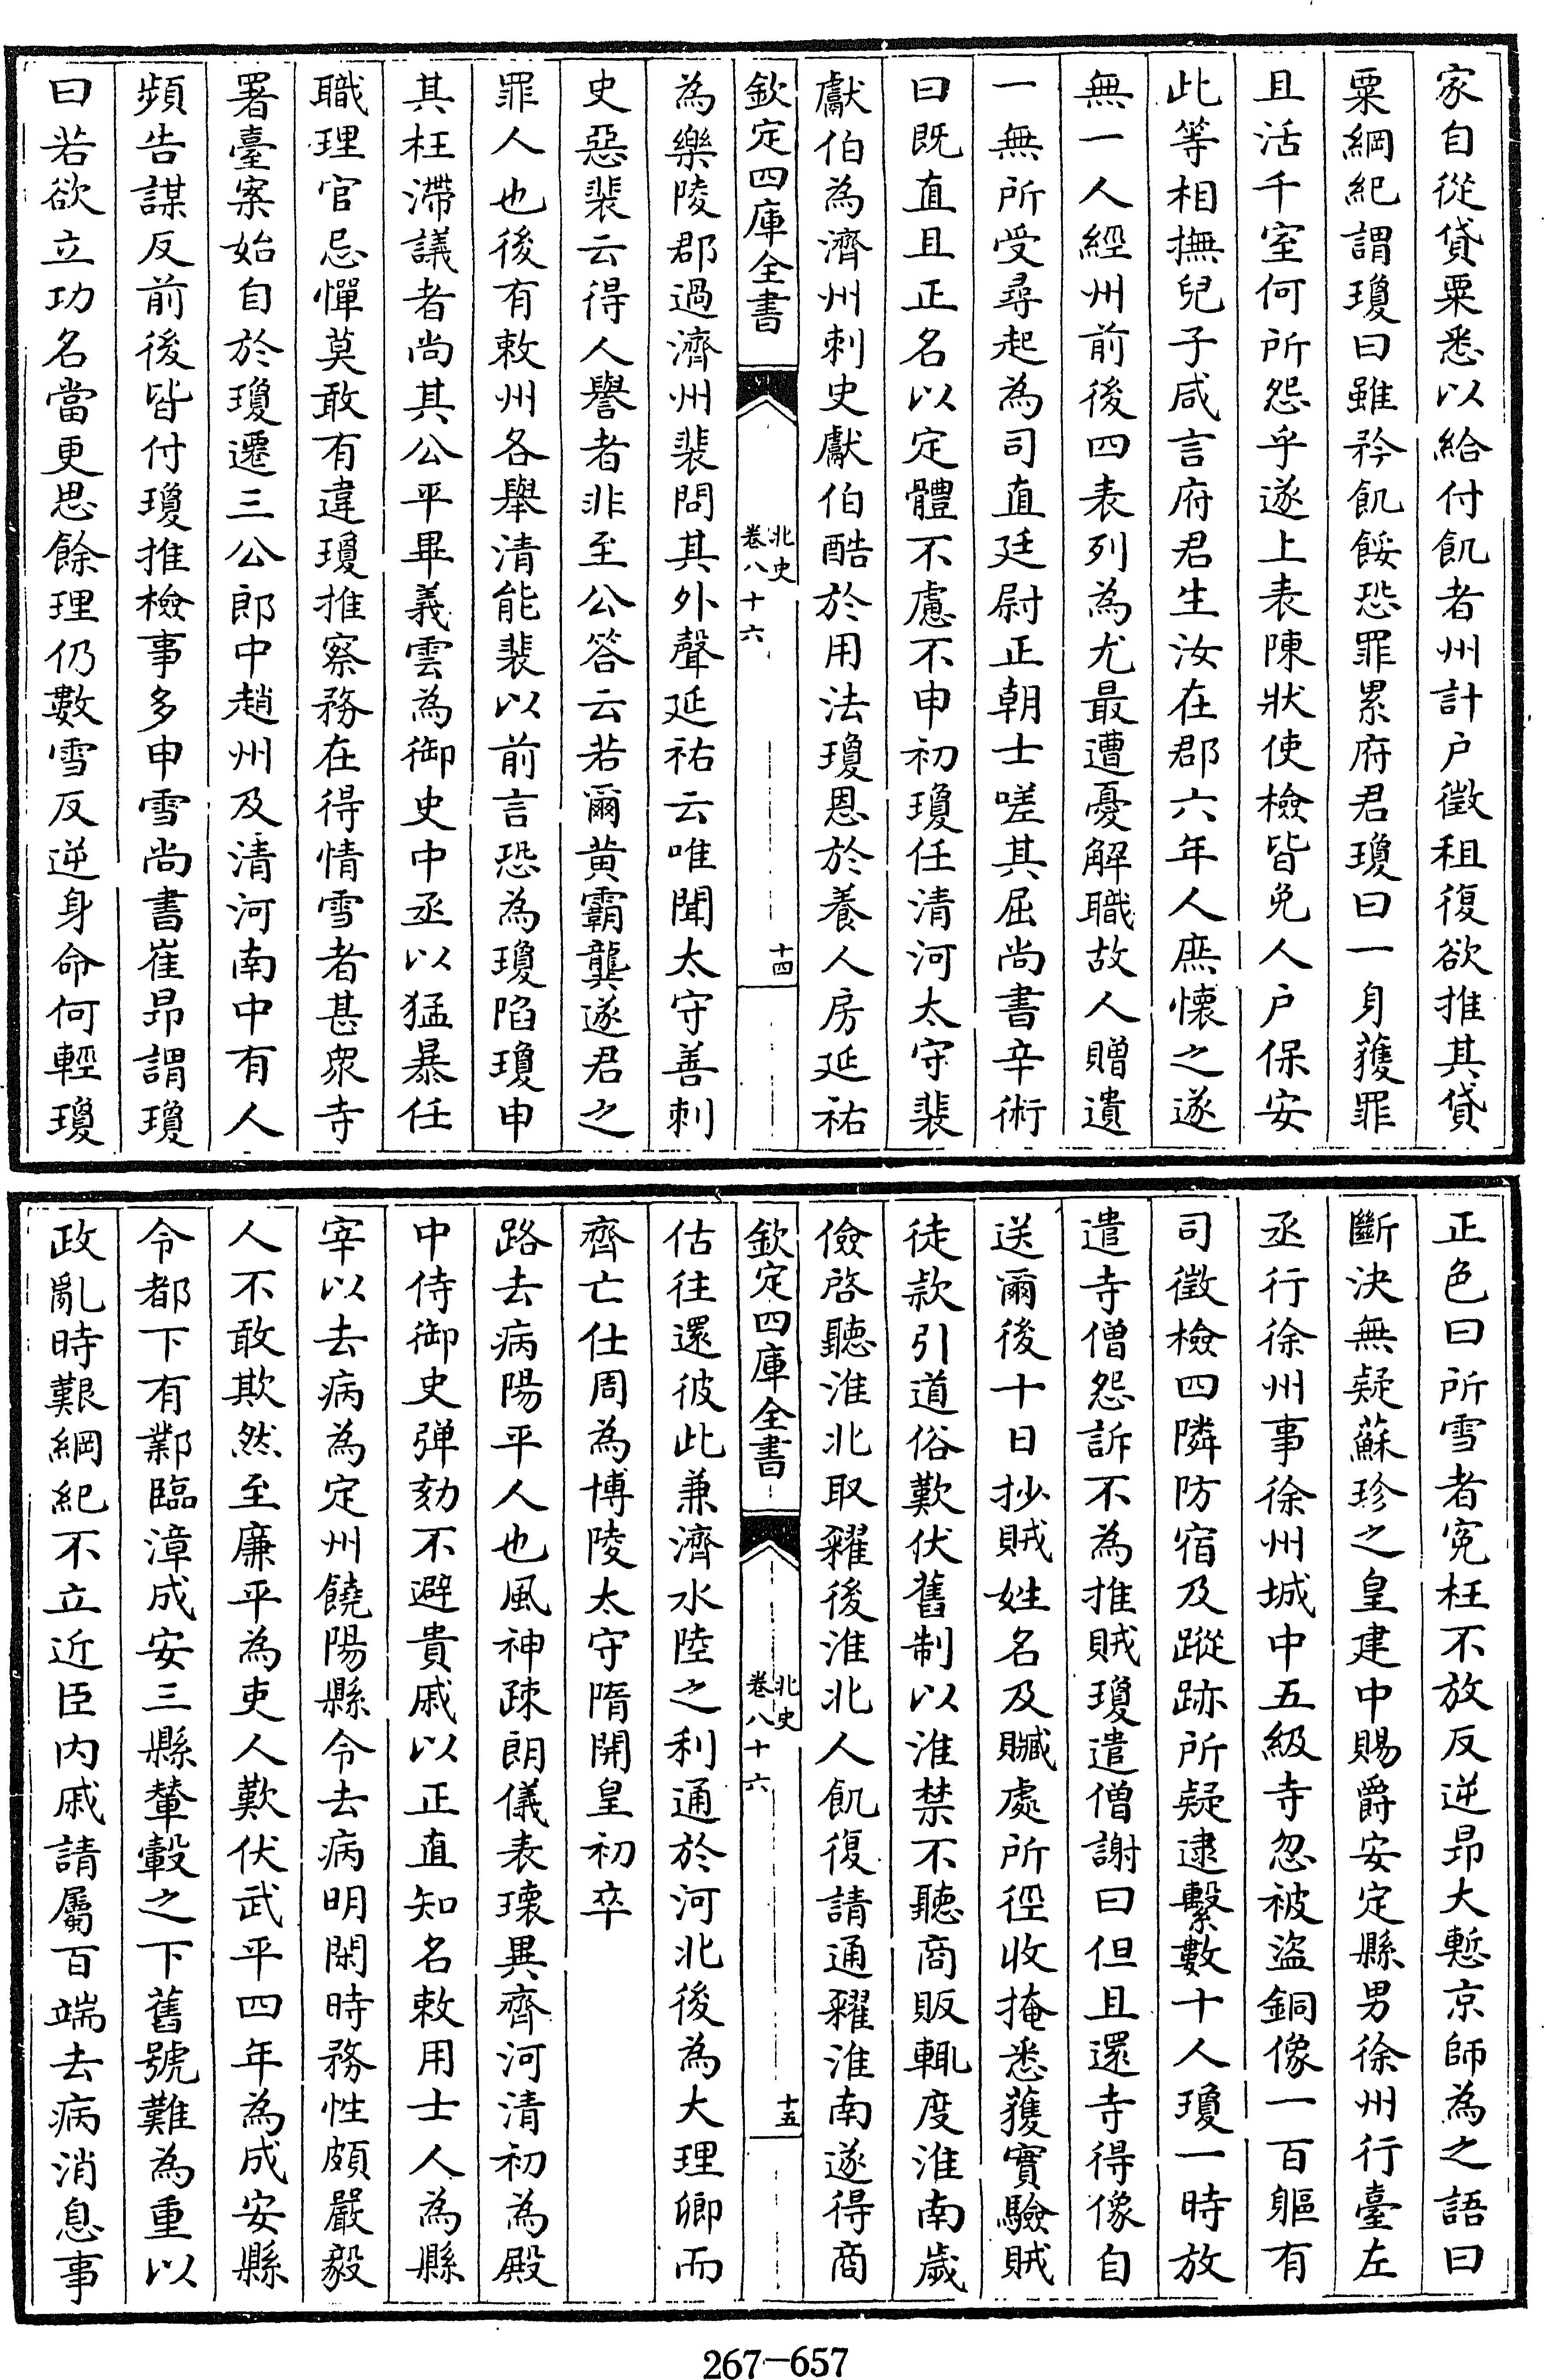 家自從貸粟悉以給付飢者州計户徵租復欲推其貸
粟綱紀謂瓊曰雖矜飢餒恐罪累府君瓊曰一身獲罪
且活千室何所怨乎遂上表陳狀使檢皆免人户保安
此等相撫兒子咸言府君生汝在郡六年人庶懷之遂
無一人經州前後四表列為尤最遭憂解職故人贈遺
一無所受尋起為司直廷尉正朝士嗟其屈尚書辛術
曰既直且正名以定體不慮不申初瓊任清河太守裴
獻伯為濟州刺史獻伯酷於用法瓊恩於養人房延祐
欽定四庫全書
北史
卷八十六
十四
為樂陵郡過濟州裴問其外聲延祐云唯聞太守善刺
史惡裴云得人譽者非至公答云若爾黄霸龔遂君之
罪人也後有敕州各舉清能裴以前言恐為瓊陷瓊申
其枉滯議者尚其公平畢義雲為御史中丞以猛暴任
職理官忌憚莫敢有違瓊推察務在得情雪者甚衆寺
署臺案始自於瓊遷三公郎中趙州及清河南中有人
頻告謀反前後皆付瓊推檢事多申雪尚書崔昂謂瓊
曰若欲立功名當更思餘理仍數雪反逆身命何輕瓊
正色曰所雪者寃枉不放反逆昂大慙京師為之語曰
斷決無疑蘇珍之皇建中賜爵安定縣男徐州行臺左
丞行徐州事徐州城中五級寺忽被盜銅像一百軀有
司徵檢四隣防宿及蹤跡所疑逮繫數十人瓊一時放
遣寺僧怨訴不為推賊瓊遣僧謝曰但且還寺得像自
送爾後十日抄賊姓名及贓處所徑收掩悉獲實驗賊
徒款引道俗歎伏舊制以淮禁不聽商販輒度淮南歲
儉啓聽淮北取糴後淮北人飢復請通糴淮南遂得商
欽定四庫全書
北史
卷八十六
十五
估往還彼此兼濟水陸之利通於河北後為大理卿而
齊亡仕周為博陵太守隋開皇初卒
路去病陽平人也風神疎朗儀表瓌異齊河清初為殿
中侍御史彈劾不避貴戚以正直知名敕用士人為縣
宰以去病為定州饒陽縣令去病明閑時務性頗嚴毅
人不敢欺然至廉平為吏人歎伏武平四年為成安縣
令都下有鄴臨漳成安三縣輦轂之下舊號難為重以
政亂時艱綱紀不立近臣内戚請屬百端去病消息事
267-657